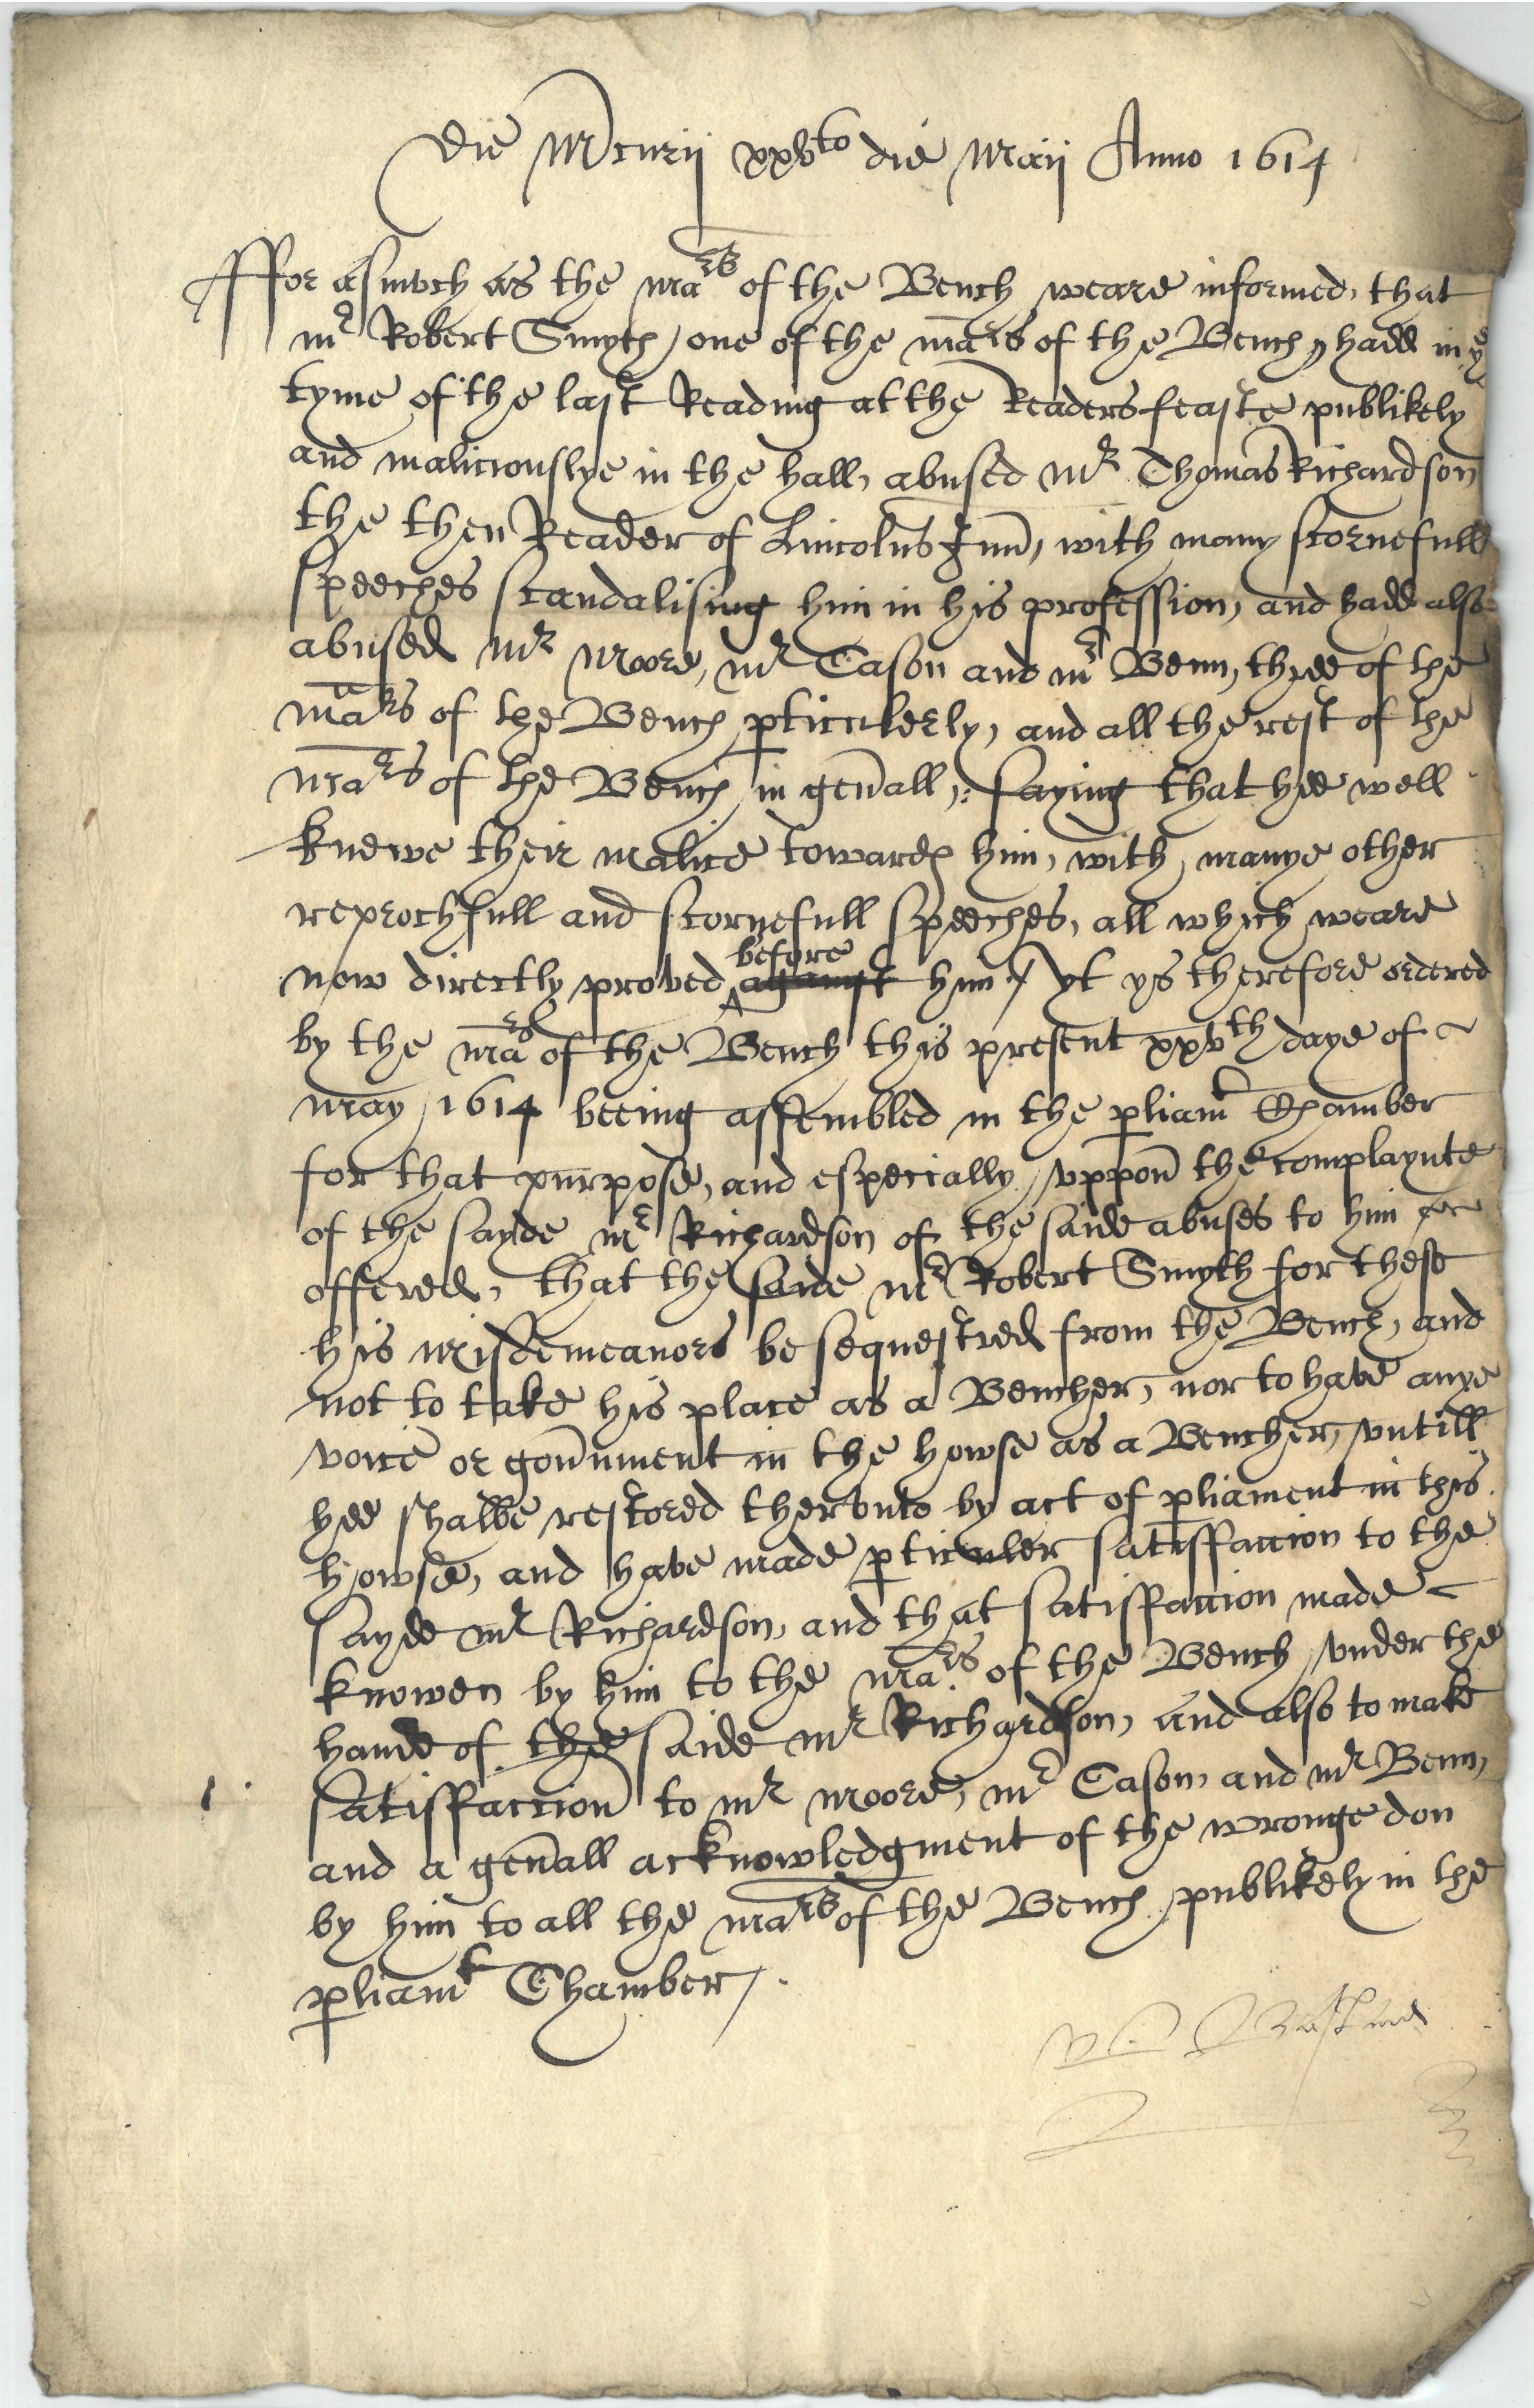 Die Mrcurij xxvto die Maij Anno 1614
Ffor asmuch as the Mars of the Bench weare informed, that
mr Robert Smyth, one of the mars of the Bench, hadd in ye
tyme of the last Reading at the Readers feaste publikely
and maliciouslye in the hall, abused Mr Thomas Richardson
the then Reader of Lincolns Inn, with many scornefull
speeches scandalising him in his profession, and hadd also
abused Mr Moore, mr Eason and mr Benn, three of the
mars of the Bench pticulerly, and all the rest of the
Mars of the Bench in genall, saying that hee well
knewe their malice towards him, with manye other
reprochfull and scornefull speeches, all which weare
before
now directly proved against him / yt ys therefore ordered
by the mars of the Bench this present xxvth daye of
May 1614 beeing assembled in the pliamt Chamber
for that purpose, and especially vppon the complaynte
of the sayde mr Richardson of the saide abuses to him
offered, that the saide mr Robert Smyth for these
his misdemeanors be sequestred from the Bench, and
not to take his place as a Bencher, nor to have anye
voice or gounment in the howse as a Bencher, vntill
hee shalbe restored thervnto by act of pliament in this
howse, and have made pticuler satisfaccion to the
sayde mr Richardson, and that satisfaccion made
knowen by him to the Mars of the Bench vnder the
hande of the saide mr Richardson, and also to make
satisfaccion to mr Moore, mr Eason, and mr Benn,
and a genall acknowledgment of the wronge don
by him to all the mars of the Bench publikely in the
pliamt Chamber /.